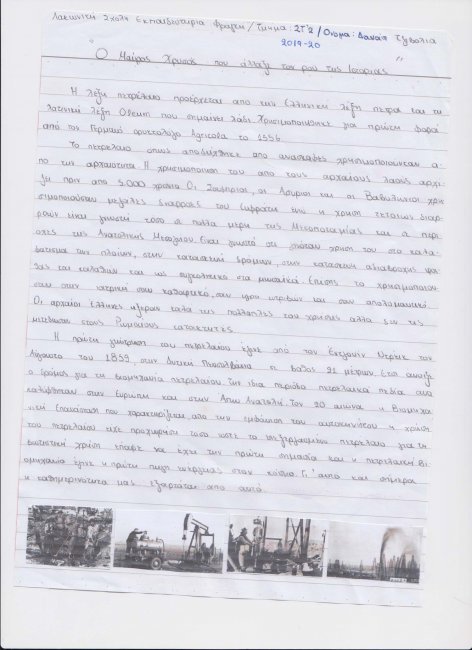 Λακωνική Σχολή Εκπαιδευτήρια Φράγκη / Τμήμα: ΣΤ'2 / Όνομα: Δανάη
2019-20
"Ο Μαύρος Χρυσός που άλλαξε τον ρου της Ιστορίας"
Η λέξη πετρέλαιο προέρχεται από την Ελληνική λέξη πέτρα και τη
λατινική λέξη Oleum που σημαίνει λάδι. Χρησιμοποιήθηκε για πρώτη φορά
από τον Γερμανό ορυκτολόγο Agricola το 1556.
Το πετρέλαιο όπως αποδείχθηκε από ανασκαφές χρησιμοποιούνταν α-
πό την αρχαιότητα. Η χρησιμοποίηση του από τους αρχαίους λαούς αρχί-
ζει πριν από 5.000 χρόνια. Οι Σουμέριοι, οι Ασύριοι και οι Βαβυλώνιοι χρη-
σιμοποιούσαν μεγάλες διαρροές του Ευφράτη ενώ η χρήση τέτοιων διαρ-
ροών είναι γνωστή τόσο σε πολλά μέρη της Μεσοποταμίας και σε περι-
οχές της Ανατολικής Μεσογείου. Είναι γνωστό ότι γινόταν χρήση του στο καλα-
φάτισμα των πλοίων, στην κατασκευή δρόμων, στην κατασκευή αδιάβροχης
και καλαθιών και ως συγκολλητικό στα μωσαϊκά. Επίσης το χρησιμοποιού-
σαν στην ιατρική σαν καθαρτικό, σαν υγρό εντριβών και σαν απολυμαντικό.
Οι αρχαίοι Έλληνες ήξεραν καλά τις πολλαπλές του χρήσεις αλλά δεν τις
μετέδωσαν στους Ρωμαίους κατακτητές.
Η πρώτη γεώτρηση του πετρελαίου έγινε από τον Έντγουιν Ντρέικ τον
Αύγουστο του 1859, στην Δυτική Πενσυλβάνια σε βάθος 21 μέτρων. Έτσι άνοιξε
ο δρόμος για τη βιομηχανία πετρελαίου. Την ίδια περίοδο πετρελαϊκά πεδία ανα-
καλύφθηκαν στην Ευρώπη και στην Άπω Ανατολή. Τον 20 αιώνα η Βιομηχα-
νική Επανάσταση που χαρακτηρίζεται από την εμφάνιση του αυτοκινήτου η χρήση
του πετρελαίου είχε προχωρήσει τόσο ώστε το ανεξέργαστο πετρέλαιο για τη
φωτιστική χρήση έπαψε να έχει την πρώτη σημασία και η πετρελαϊκή βι-
ομηχανία έγινε η πρώτη πηγή ενέργειας στον κόσμο. Γι' αυτό και σήμερα
η καθημερινότητα μας εξαρτάται από αυτό.